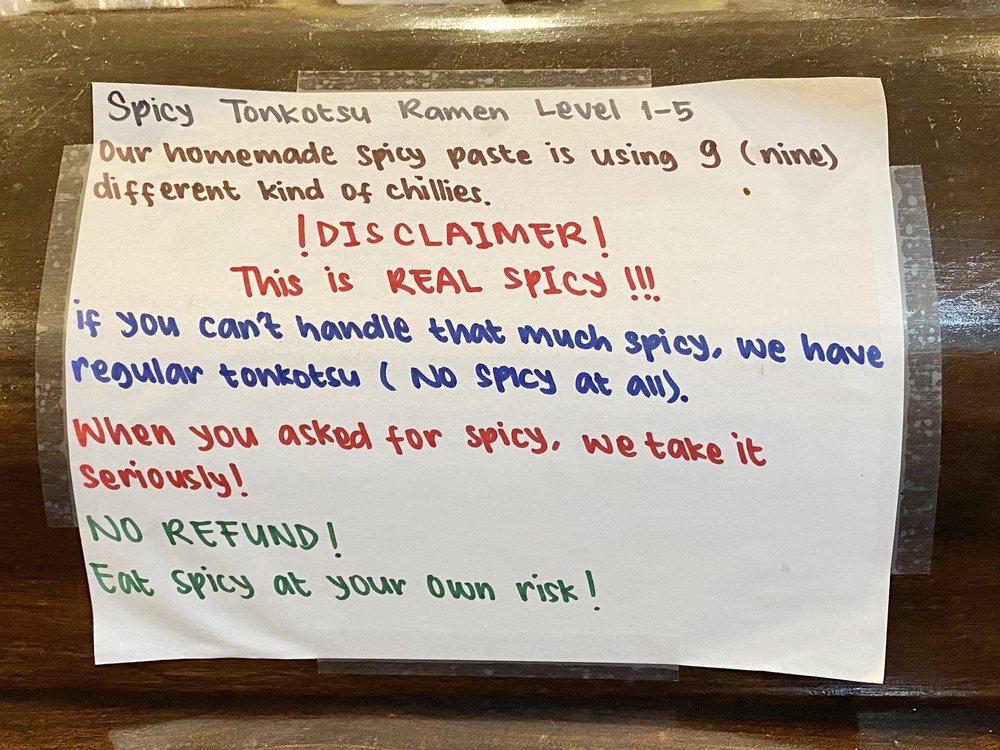 Spicy Tonkotsu Ramen Level 1-5
Our homemade spicy paste is using 9 (nine)
different kind of chillies.
!DISCLAIMER!
This is REAL SPICY !!!
if you can't handle that much spicy, we have
regular tonkotsu (No spicy at all).
When you asked for spicy, we take it
seriously!
NO REFUND!
Eat spicy at your own risk!